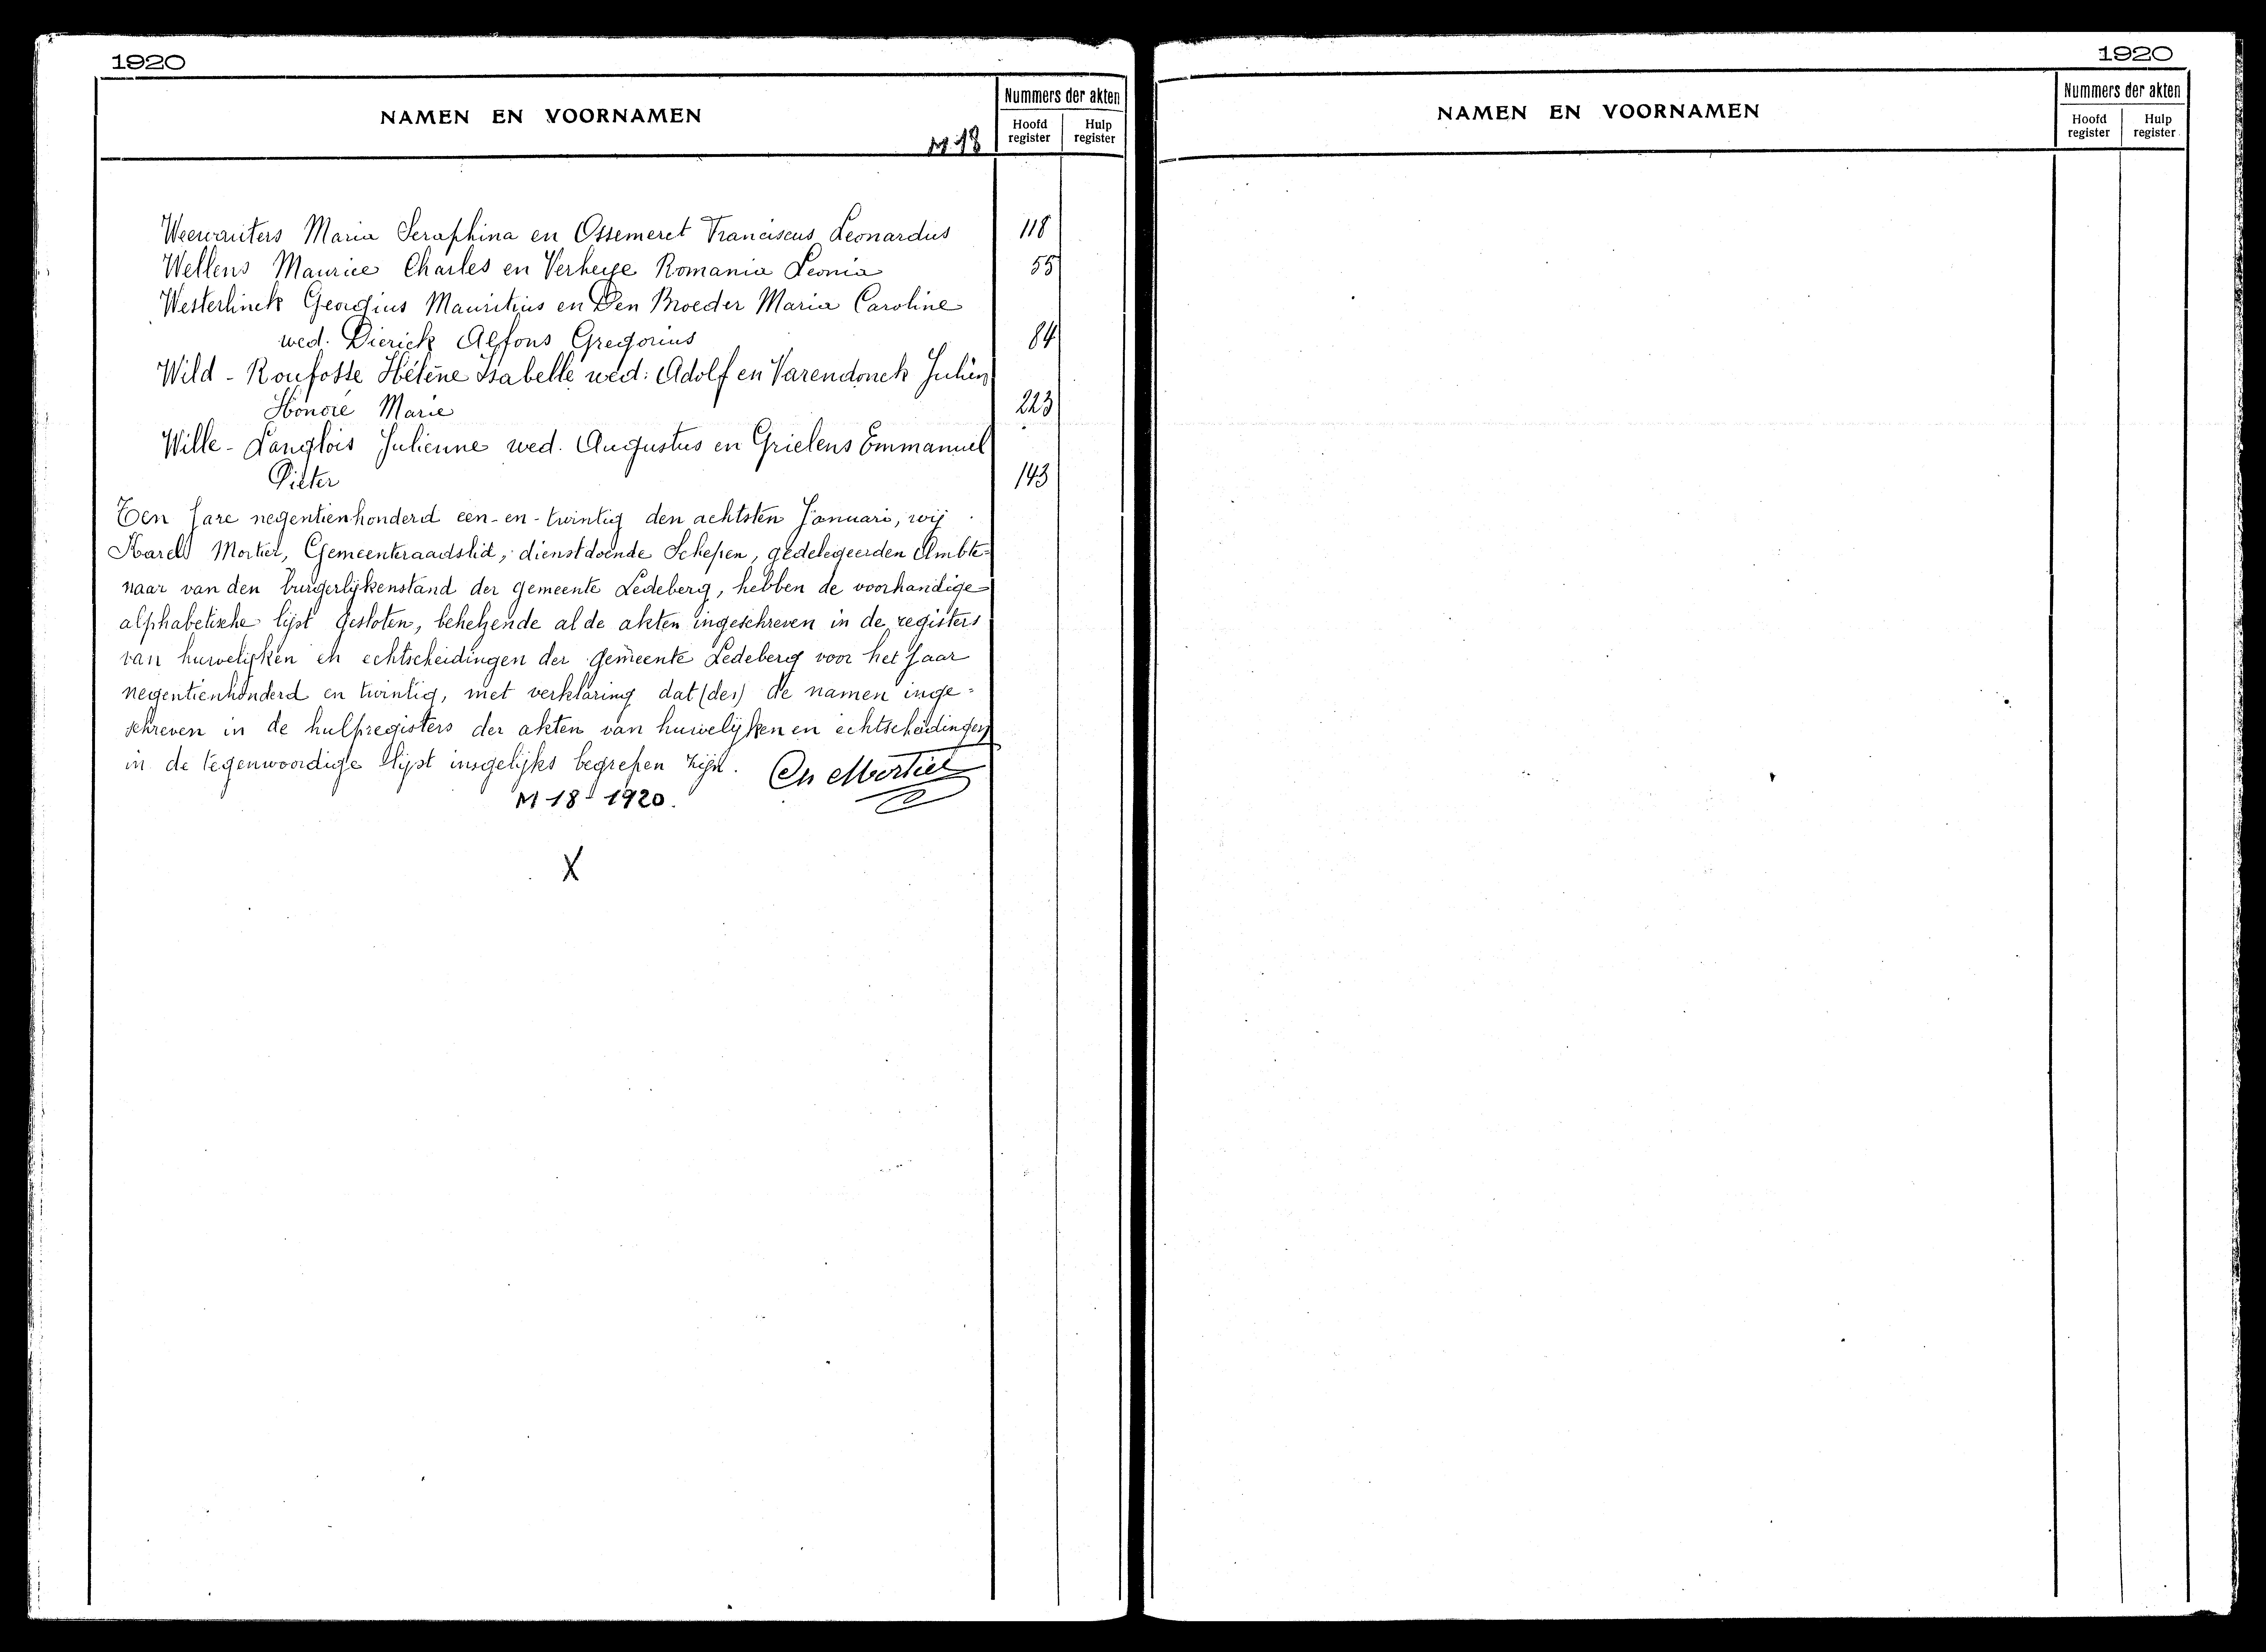 1920
NAMEN EN VOORNAMEN
M 18
Nummers der akten
Hoofd register
Hulp register
Weewauters Maria Seraphina en Ossemeret Franciscus Leonardus 118
Wellens Maurice Charles en Verheye Romania Leonia 55
Westerlinck Georgius Mauritius en Den Broeder Maria Caroline
wed. Dierick Alfons Gregorius 84
Wild - Roufosse Hélène Isabelle wed: Adolf en Varendonck Julien
Honoré Marie 223
Wille - Langlois Julienne wed. Augustus en Grielens Emmanuel
Pieter 143
Ten Jare negentienhonderd een-en-twintig den achtsten Januari, wij
Karel Mortier, Gemeenteraadslid, dienstdoende Schepen, gedelegeerden Ambte=
naar van den burgerlijkenstand der gemeente Ledeberg, hebben de voorhandige
alphabetische lijst gesloten, behelzende al de akten ingeschreven in de registers
van huwelijken en echtscheidingen der gemeente Ledeberg voor het Jaar
negentienhonderd en twintig, met verklaring dat (der) de namen inge=
schreven in de hulpregisters der akten van huwelijken en echtscheidingen
in de tegenwoordige lijst insgelijks begrepen zijn. Ch Mortier
M 18 - 1920.
X
1920
NAMEN EN VOORNAMEN
Nummers der akten
Hoofd register
Hulp register